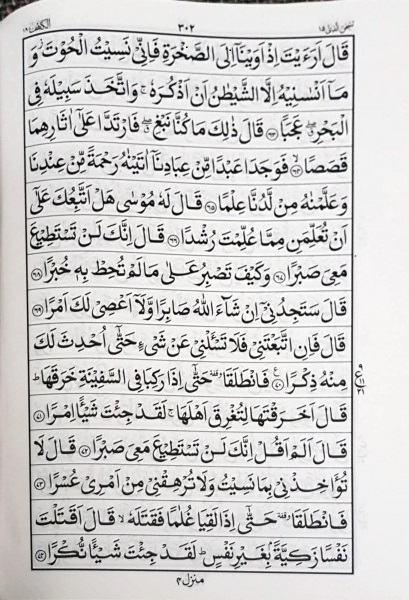 سبحن الذی ۱۵ ۳۰۲ الكهف ۱۸
قَالَ اَرَءَيْتَ اِذْ اَوَيْنَاۤ اِلَى الصَّخْرَةِ فَاِنِّىْ نَسِيْتُ الْحُوْتَ ز وَ
مَاۤ اَنْسٰىنِيْهُ اِلَّا الشَّيْطٰنُ اَنْ اَذْكُرَهٗ ج وَاتَّخَذَ سَبِيْلَهٗ فِى
الْبَحْرِ ق عَجَبًا ﴿۶۳﴾ قَالَ ذٰلِكَ مَا كُنَّا نَبْغِ ق فَارْتَدَّا عَلٰۤى اٰثَارِهِمَا
قَصَصًا ﴿۶۴﴾ فَوَجَدَا عَبْدًا مِّنْ عِبَادِنَاۤ اٰتَيْنٰهُ رَحْمَةً مِّنْ عِنْدِنَا
وَعَلَّمْنٰهُ مِنْ لَّدُنَّا عِلْمًا ﴿۶۵﴾ قَالَ لَهٗ مُوْسٰى هَلْ اَتَّبِعُكَ عَلٰۤى
اَنْ تُعَلِّمَنِ مِمَّا عُلِّمْتَ رُشْدًا ﴿۶۶﴾ قَالَ اِنَّكَ لَنْ تَسْتَطِيْعَ
مَعِىَ صَبْرًا ﴿۶۷﴾ وَكَيْفَ تَصْبِرُ عَلٰى مَا لَمْ تُحِطْ بِهٖ خُبْرًا ﴿۶۸﴾
قَالَ سَتَجِدُنِىْۤ اِنْ شَآءَ اللّٰهُ صَابِرًا وَّلَاۤ اَعْصِىْ لَكَ اَمْرًا ﴿۶۹﴾
قَالَ فَاِنِ اتَّبَعْتَنِىْ فَلَا تَسْـَٔلْنِىْ عَنْ شَىْءٍ حَتّٰۤى اُحْدِثَ لَكَ
مِنْهُ ذِكْرًا ﴿۷۰﴾ ع فَانْطَلَقَا وقفة حَتّٰۤى اِذَا رَكِبَا فِى السَّفِيْنَةِ خَرَقَهَا ط
۹ ع ۱۱ ۲۱
قَالَ اَخَرَقْتَهَا لِتُغْرِقَ اَهْلَهَا ج لَقَدْ جِئْتَ شَيْـًٔا اِمْرًا ﴿۷۱﴾
قَالَ اَلَمْ اَقُلْ اِنَّكَ لَنْ تَسْتَطِيْعَ مَعِىَ صَبْرًا ﴿۷۲﴾ قَالَ لَا
تُؤَاخِذْنِىْ بِمَا نَسِيْتُ وَلَا تُرْهِقْنِىْ مِنْ اَمْرِىْ عُسْرًا ﴿۷۳﴾
فَانْطَلَقَا وقفة حَتّٰۤى اِذَا لَقِيَا غُلٰمًا فَقَتَلَهٗ لا قَالَ اَقَتَلْتَ
نَفْسًا زَكِيَّةًۢ بِغَيْرِ نَفْسٍ ط لَقَدْ جِئْتَ شَيْـًٔا نُّكْرًا ﴿۷۴﴾
منزل ۴